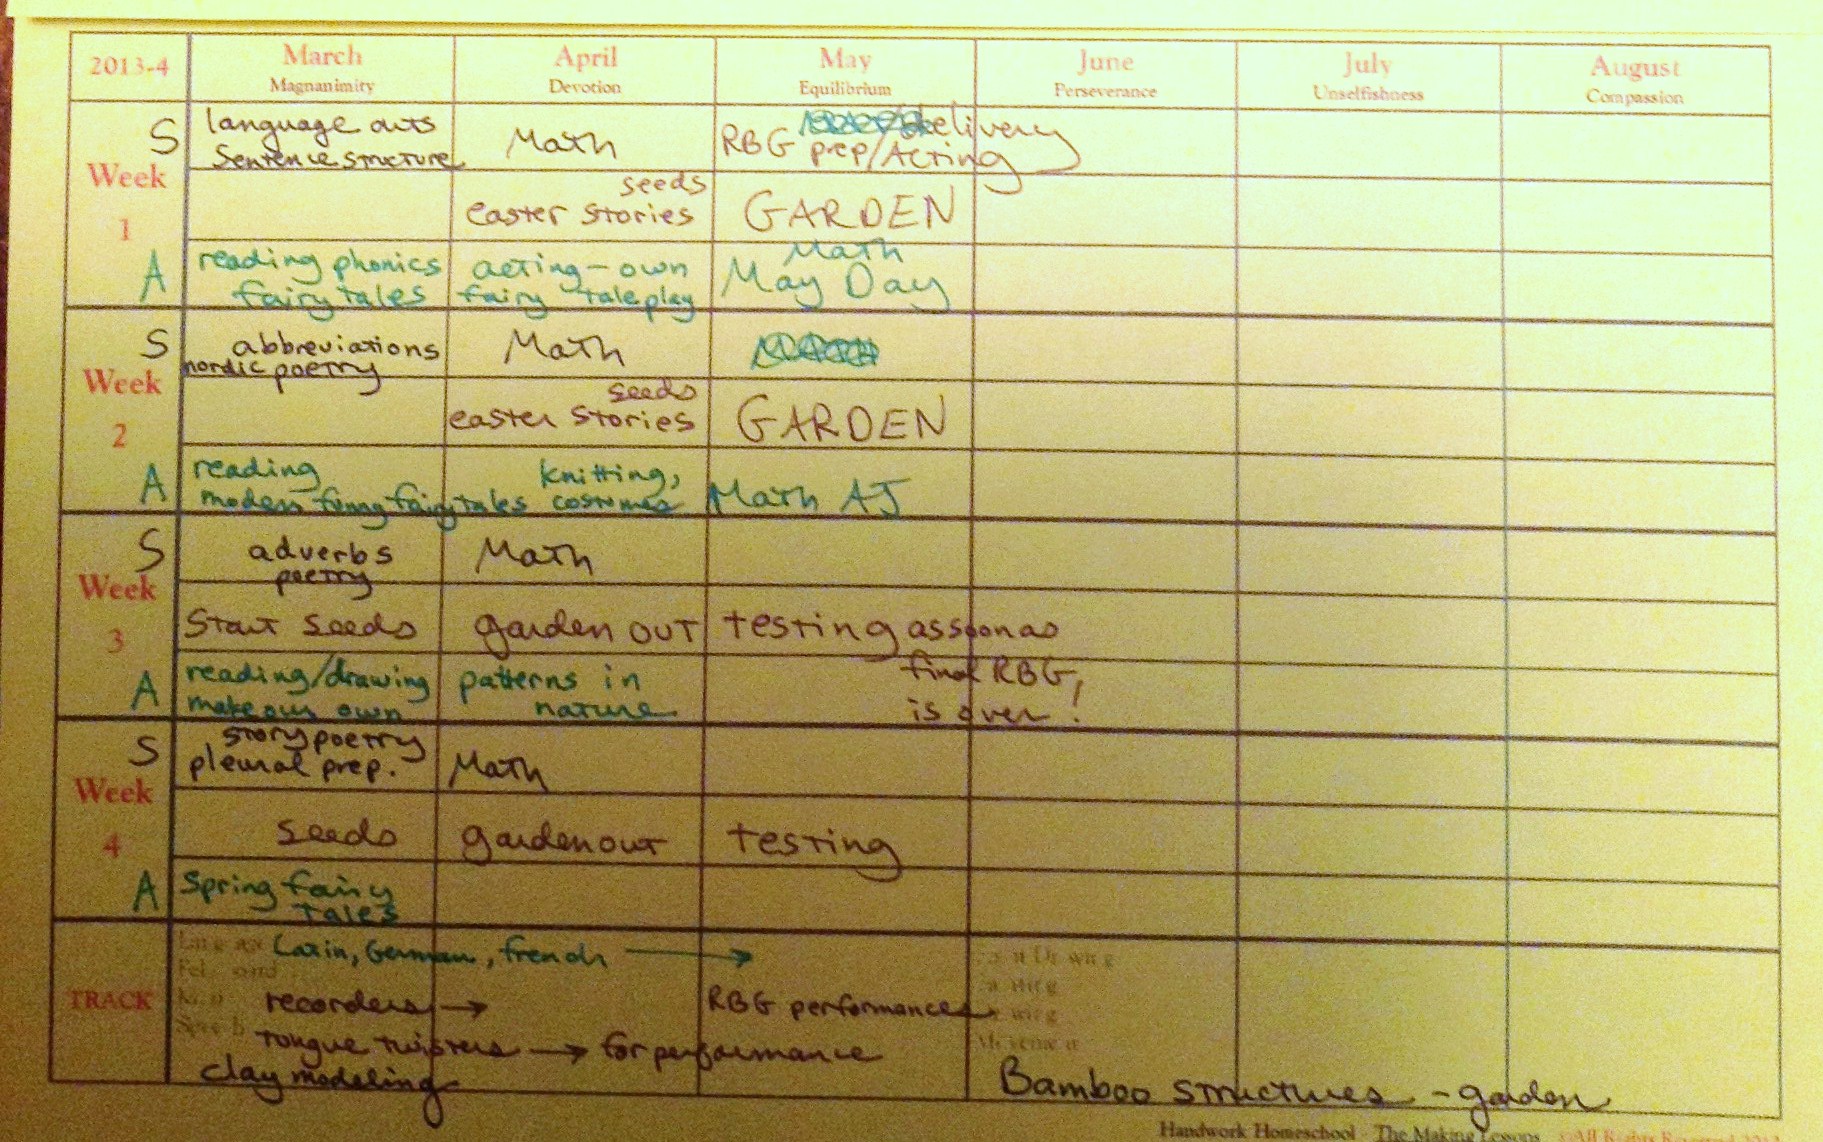 2013-4 March April May June July August
Magnanimity Devotion Equilibrium Perseverance Unselfishness Compassion
S language arts Math delivery
Sentence structure RBG prep/Acting
Week
seeds
1 easter stories GARDEN
A reading phonics acting - own Math
fairy tales fairy tale play May Day
S abbreviations Math
nordic poetry
Week seeds
2 easter stories GARDEN
A reading knitting,
modern funny fairy tales costumes Math AJ
S adverbs Math
poetry
Week
3 Start seeds garden out testing as soon as
A reading/drawing patterns in final RBG
make our own nature is over!
S story poetry
pleural prep. Math
Week
4 seeds garden out testing
A Spring fairy
tales
Latin, German, french →
TRACK recorders → RBG performances
tongue twisters → for performance
clay modeling Bamboo structures - garden
Handwork Homeschool The Making Lessons ©All Rights